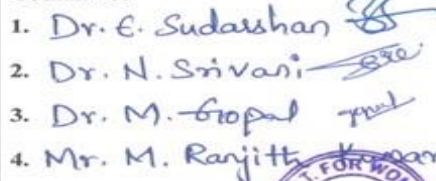 1. Dr. E. Sudarshan
2. Dr. N. Srivani
3. Dr. M. Gopal gopal
4. Mr. M. Ranjith Kumar
T. FOR WO